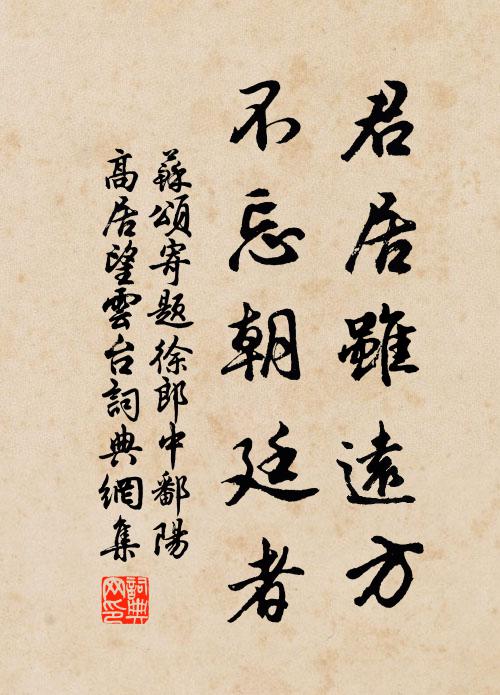 君居雖遠方
不忘朝廷者
蘇頌寄題徐郎中鄱陽
高居望雲台詞典網集
詞典
网印